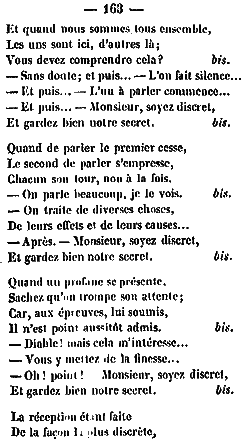 — 163 —
Et quand nous sommes tous ensemble,
Les uns sont ici, d'autres là;
Vous devez comprendre cela? bis.
— Sans doute; et puis... — L'on fait silence...
— Et puis... — L'un à parler commence...
— Et puis... — Monsieur, soyez discret,
Et gardez bien notre secret. bis.
Quand de parler le premier cesse,
Le second de parler s'empresse,
Chacun son tour, non à la fois.
— On parle beaucoup, je le vois. bis.
— On traite de diverses choses,
De leurs effets et de leurs causes...
— Après. — Monsieur, soyez discret,
Et gardez bien notre secret. bis.
Quand un profane se présente,
Sachez qu'on trompe son attente;
Car, aux épreuves, lui soumis,
Il n'est point aussitôt admis. bis.
— Diable! mais cela m'intéresse...
— Vous y mettez de la finesse...
— Oh! point! Monsieur, soyez discret,
Et gardez bien notre secret. bis.
La réception étant faite
De la façon la plus discrète,